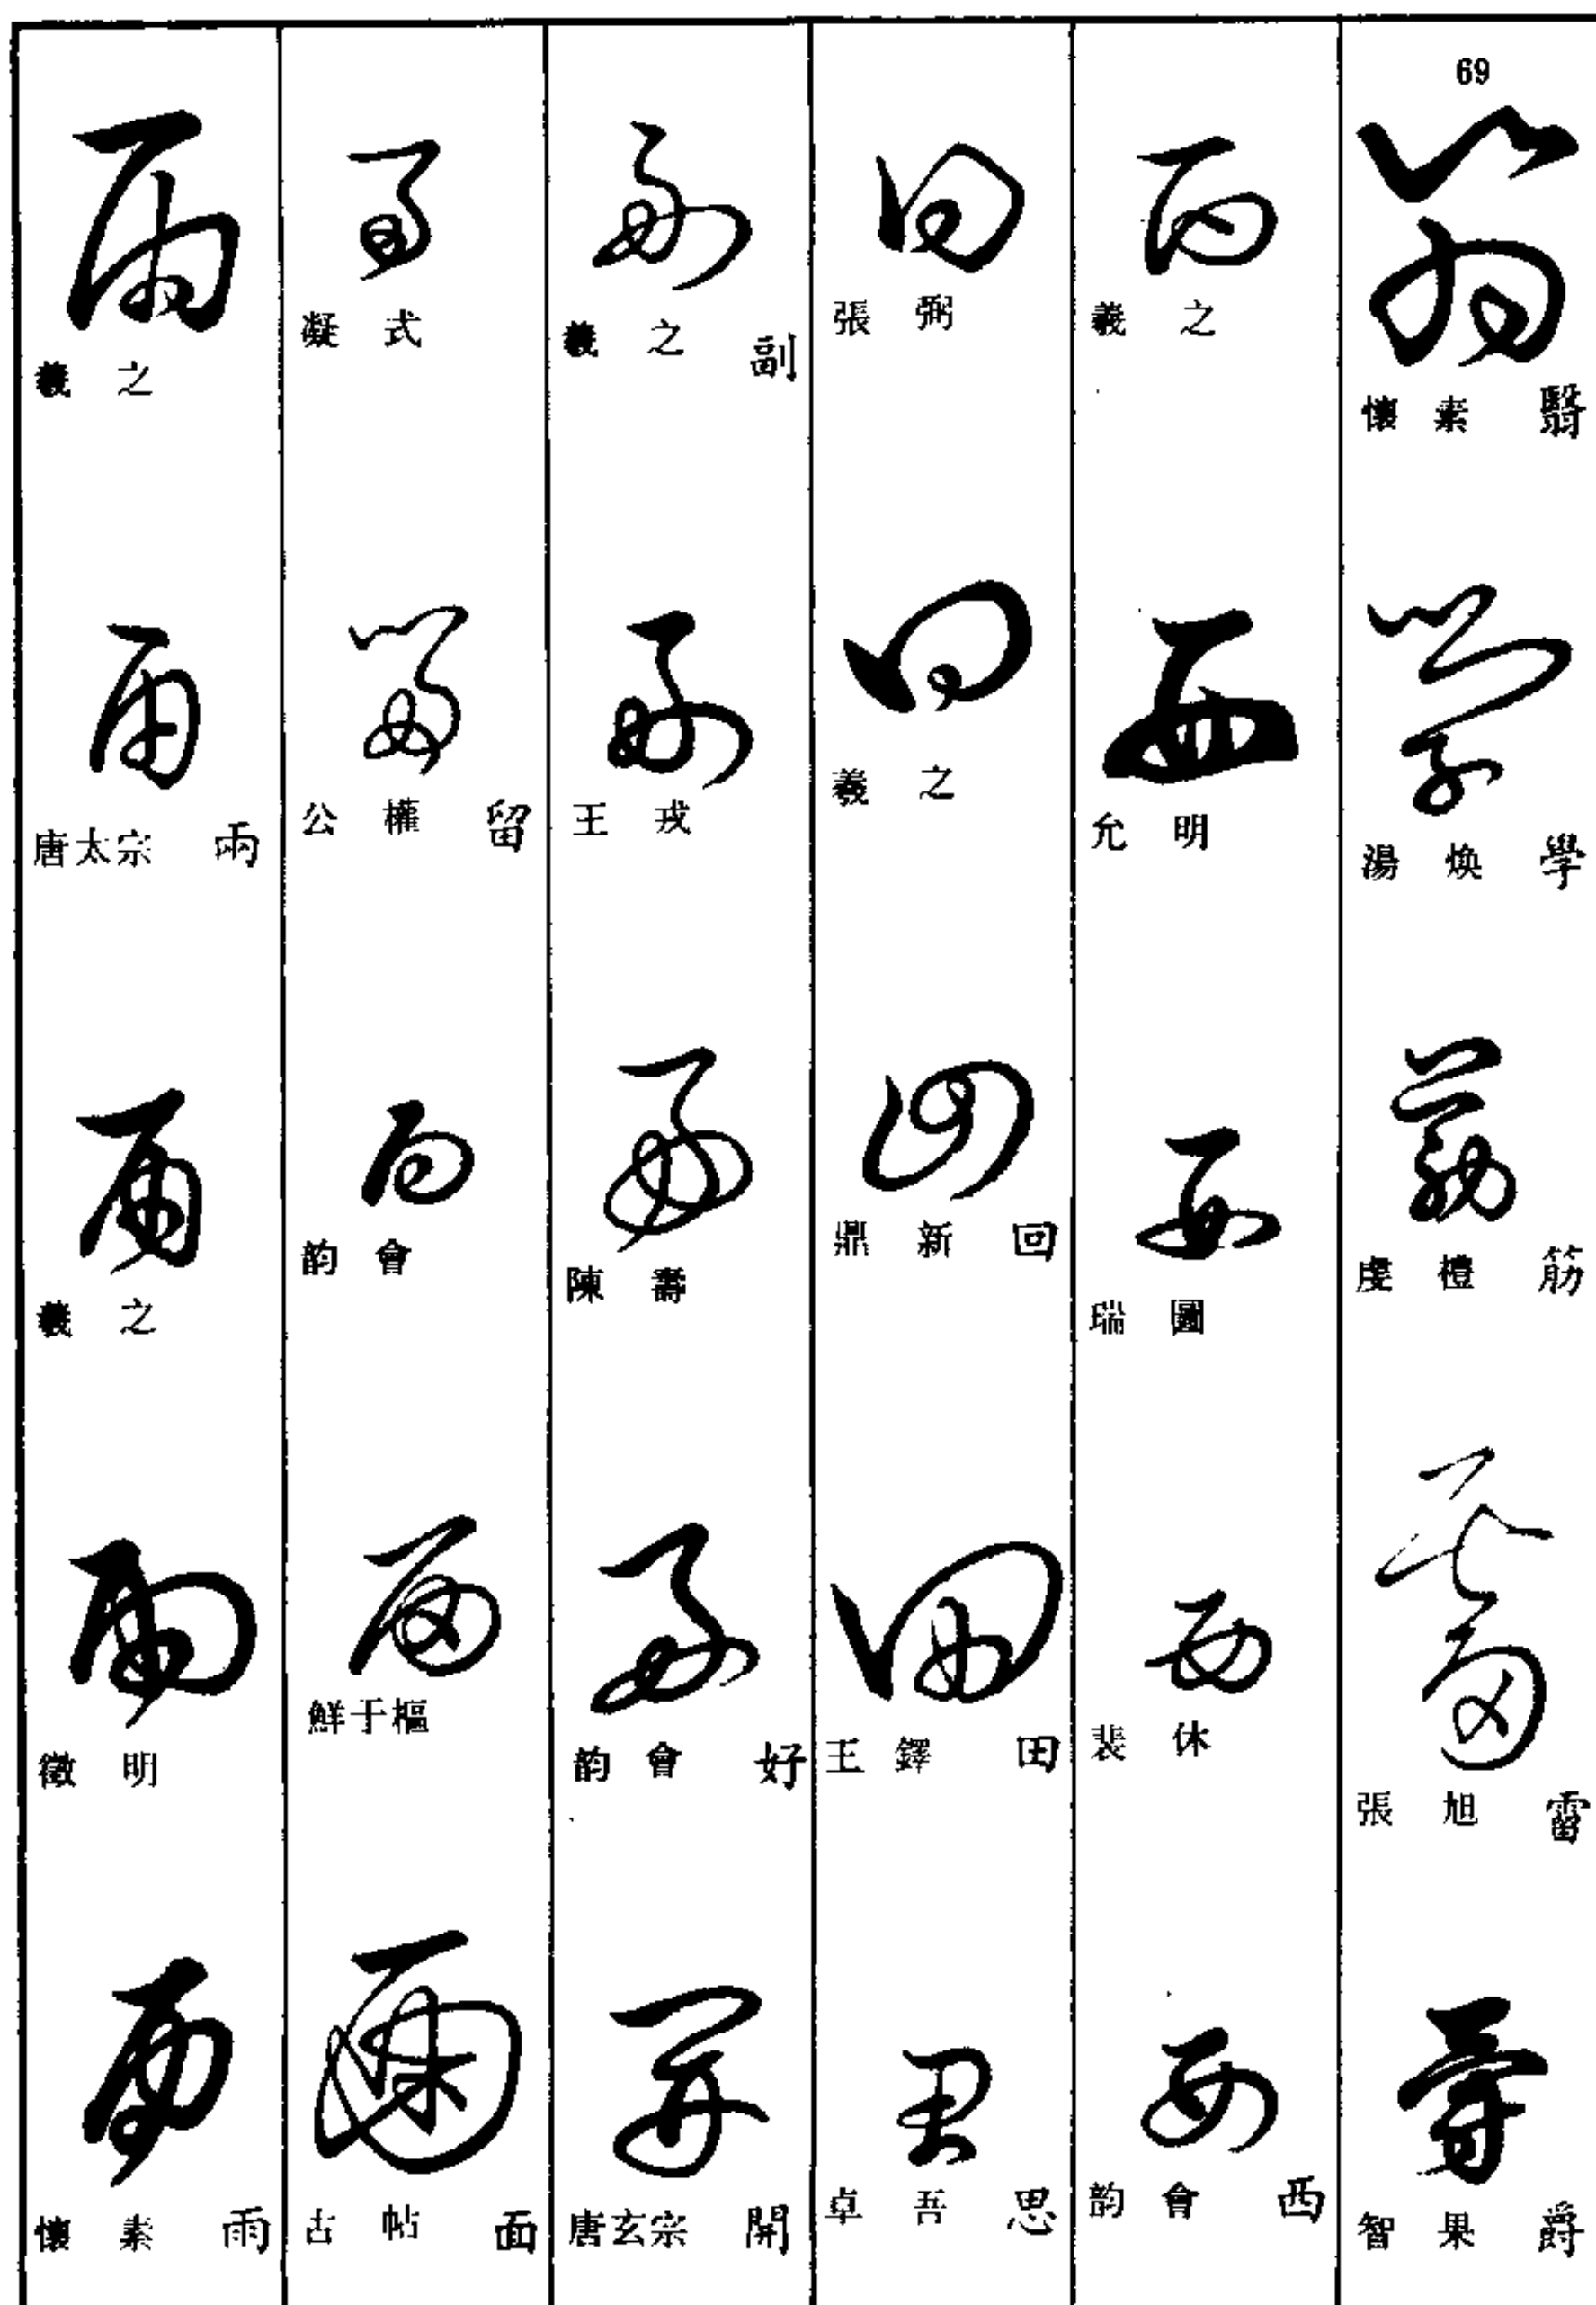 69
懷素 翳
湯煥 學
虔禮 筋
張旭 雷
智果 爵
羲之
允明
瑞圖
裴休
韵會 西
張弼
羲之
鼎新 回
王鐸 田
卓吾 思
羲之 副
王戎
陳壽
韵會 好
唐玄宗 開
凝式
公權 留
韵會
鮮于樞
古帖 面
羲之
唐太宗 兩
羲之
徵明
懷素 雨